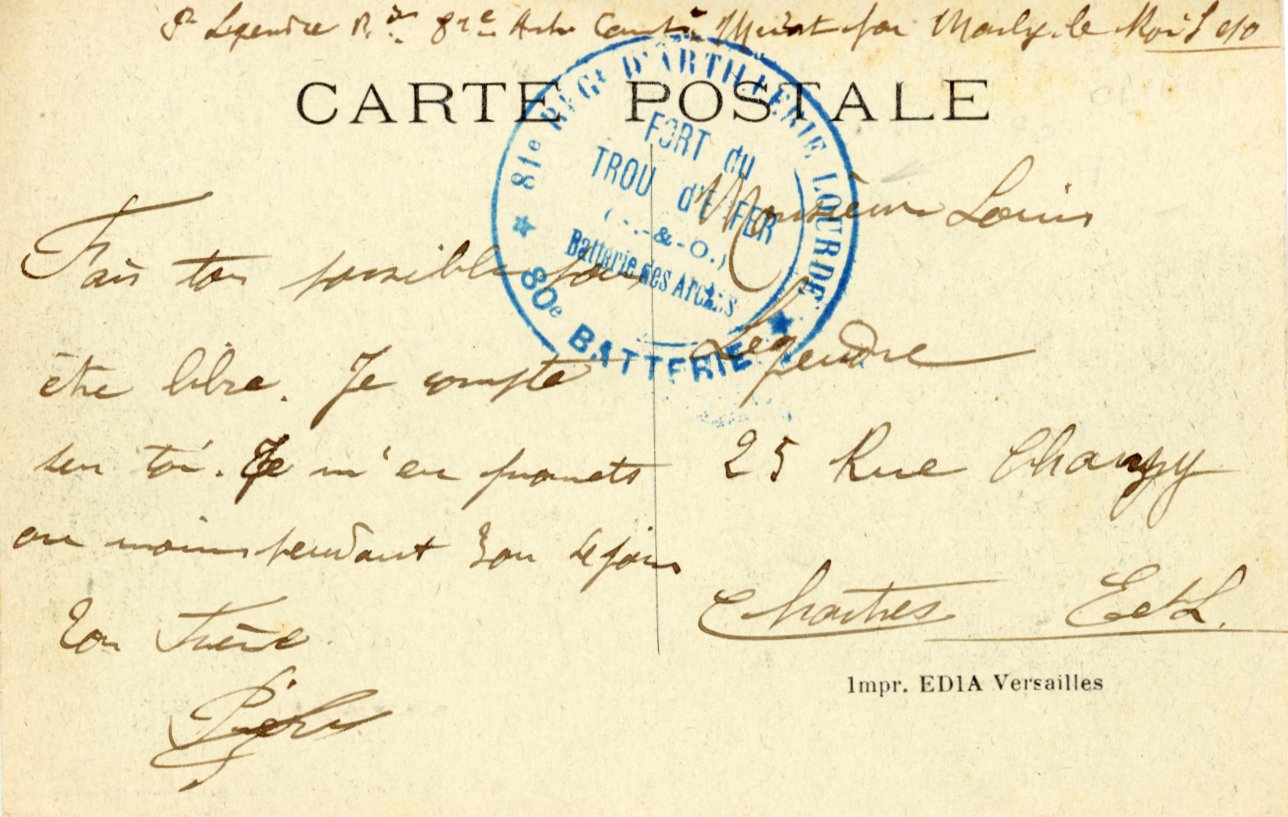 P. Legendre 81e Artie Marly-le-Roi S et O
CARTE POSTALE
81e RÉGt D'ARTILLERIE LOURDE
FORT du
TROU d'ENFER
(S.-&-O.)
Batterie des Arches
80e BATTERIE
Fais ton possible pour
être libre. Je compte
sur toi. Je m'en promets
au moins pendant ton séjour
Ton Frère
Monsieur Louis
Legendre
25 Rue Chanzy
Chartres E et L.
Impr. EDIA Versailles